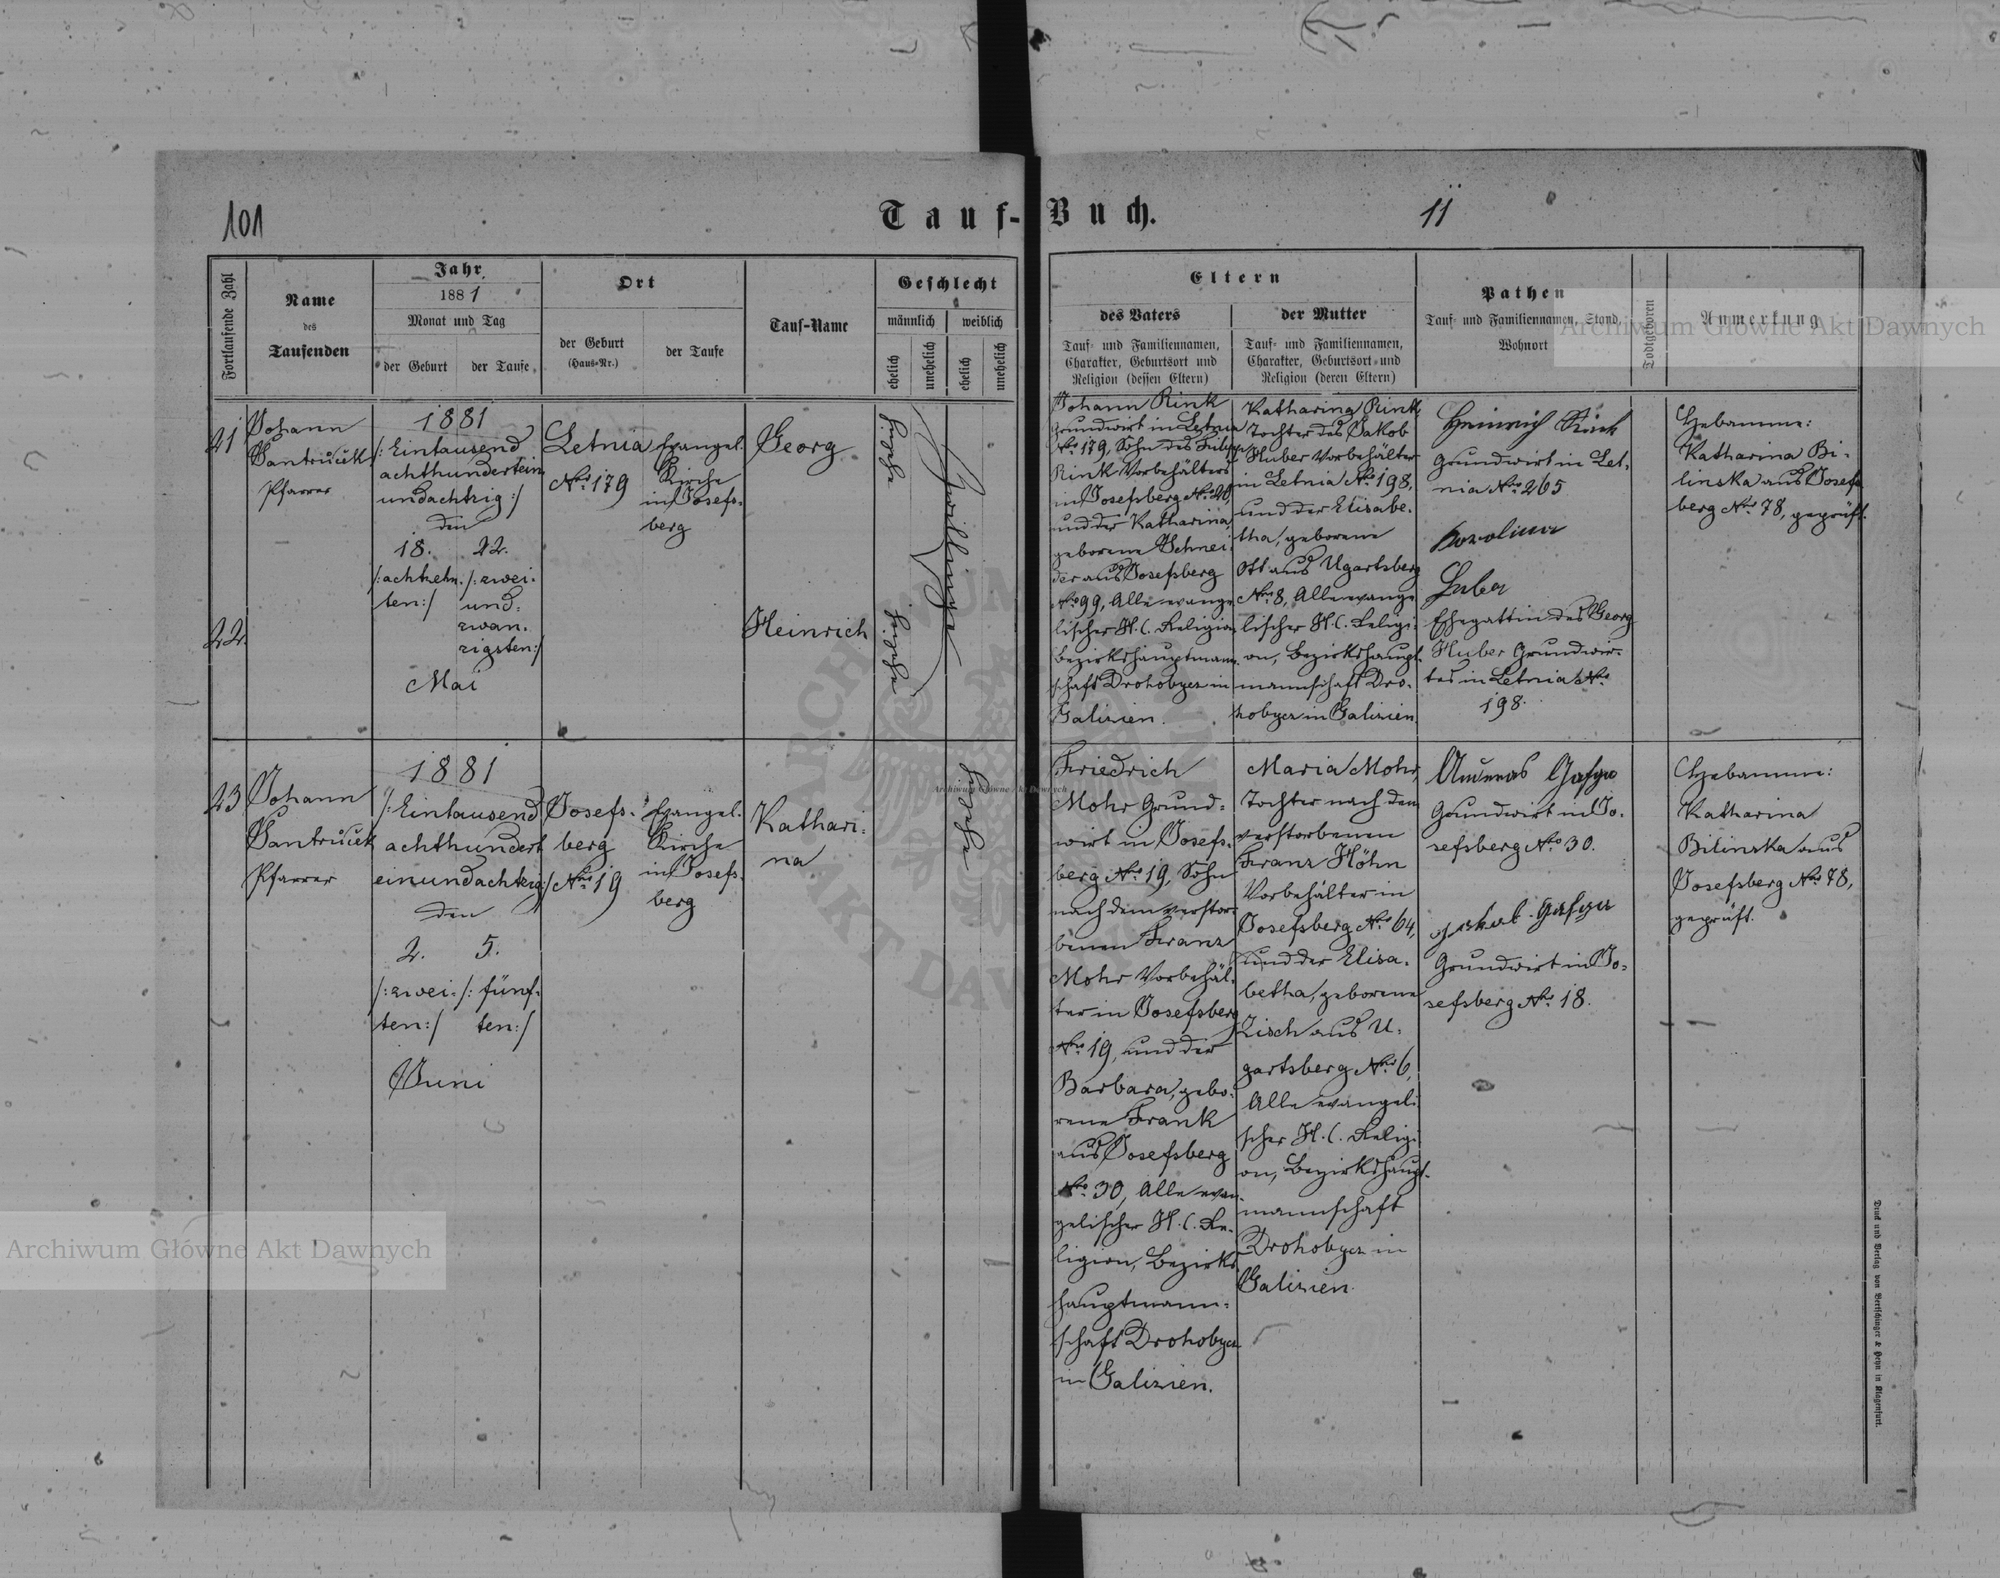 101
Tauf-Buch.
11
Fortlaufende Zahl
Name
des
Taufenden
Jahr
1881
Monat und Tag
der Geburt
der Taufe
Ort
der Geburt
(Haus-Nr.)
der Taufe
Tauf-Name
Geschlecht
männlich
weiblich
ehelich
unehelich
ehelich
unehelich
Eltern
des Vaters
Tauf- und Familiennamen,
Charakter, Geburtsort und
Religion (dessen Eltern)
der Mutter
Tauf- und Familiennamen,
Charakter, Geburtsort und
Religion (deren Eltern)
Pathen
Tauf- und Familiennamen, Stand,
Wohnort
Todtgeboren
Anmerkung
21
Johann
Santruček
Pfarrer
1881
/: Eintausend
achthundertein
undachtzig :/
den
18.
22.
/:achtzehn.
ten:/
/:zwei.
und=
zwan.
zigsten:/
Mai
Letnia
No. 179
Evangel.
Kirche
in Josefs-
berg
Georg
eheliche
Zwillinge
22
Heinrich
eheliche
Johann Rink
Grundwirt in Letnia
No. 179, Sohn des
Rink Vorbehälters
in Josefsberg
und der Katharina
geborene Schnei
der aus Josefsberg
No. 99, Alle evange
lischer H.C. Religion
Bezirkshauptmann
schaft Drohobycz in
Galizien.
Katharina Rink
Tochter des Jakob
Huber Vorbehälter
in Letnia No. 198,
und der Elisabe-
tha, geborene
Ott aus Ugartsberg
No. 8, Alle evange
lischer H.C. Religi
on, Bezirkshaupt-
mannschaft Dro-
hobycz in Galizien
Heinrich Rink
Grundwirt in Let-
nia No. 265
Karolina
Huber
Ehegattin des Georg
Huber Grundwir-
tes in Letnia No.
198.
Hebamme:
Katharina Bi-
linska aus Josefs
berg No. 78, geprüft.
23
Johann
Santruček
Pfarrer
1881
/: Eintausend
achthundert
einundachtzig:/
den
2.
5.
/:zwei-
ten:/
/: fünf-
ten:/
Juni
Josefs-
berg
No. 19
Evangel.
Kirche
in Josefs-
berg
Kathari-
na
eheliche
Friedrich
Mohr Grund=
wirt in Josefs-
berg No. 19, Sohn
nach dem verstor-
benen Franz
Mohr Vorbehäl-
ter in Josefsberg
No. 19, und der
Barbara, gebo-
rene Frank
aus Josefsberg
No. 30, Alle evan-
gelischer H.C. Re-
ligion, Bezirks
hauptmann-
schaft Drohobycz
in Galizien.
Maria Mohr,
Tochter nach dem
verstorbenen
Franz Höhn
Vorbehälter in
Josefsberg No. 64,
und der Elisa-
betha, geborene
Zisch aus U-
gartsberg No. 6,
Alle evangeli
scher H.C. Religi
on, Bezirkshaupt-
mannschaft
Drohobycz in
Galizien.
Andreas
Grundwirt in Jo-
sefsberg No. 30.
Jakob
Grundwirt in Jo-
sefsberg No. 18.
Hebamme:
Katharina
Bilinska aus
Josefsberg No. 78,
geprüft.
Druck und Verlag von Bertschinger & Heyn in Klagenfurt.
Archiwum Główne Akt Dawnych
Archiwum Główne Akt Dawnych
Archiwum Główne Akt Dawnych